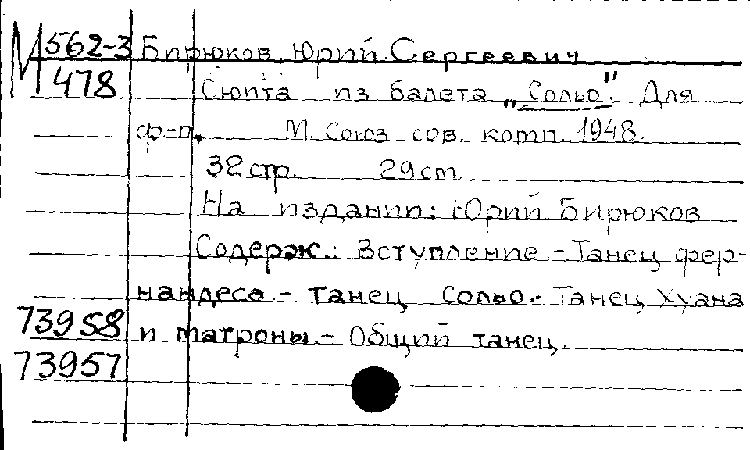 М 562-3 Бирюков, Юрий Сергеевич
478 Сюита из балета „Сольо". Для
ф-п. М. Союз сов. комп. 1948.
32 стр. 29 cm
На издании: Юрий Бирюков
Содерж.: Вступление - Танец фер-
нандеса. - Танец Сольо. - Танец Хуана
73958 и матроны. - Общий танец.
73957